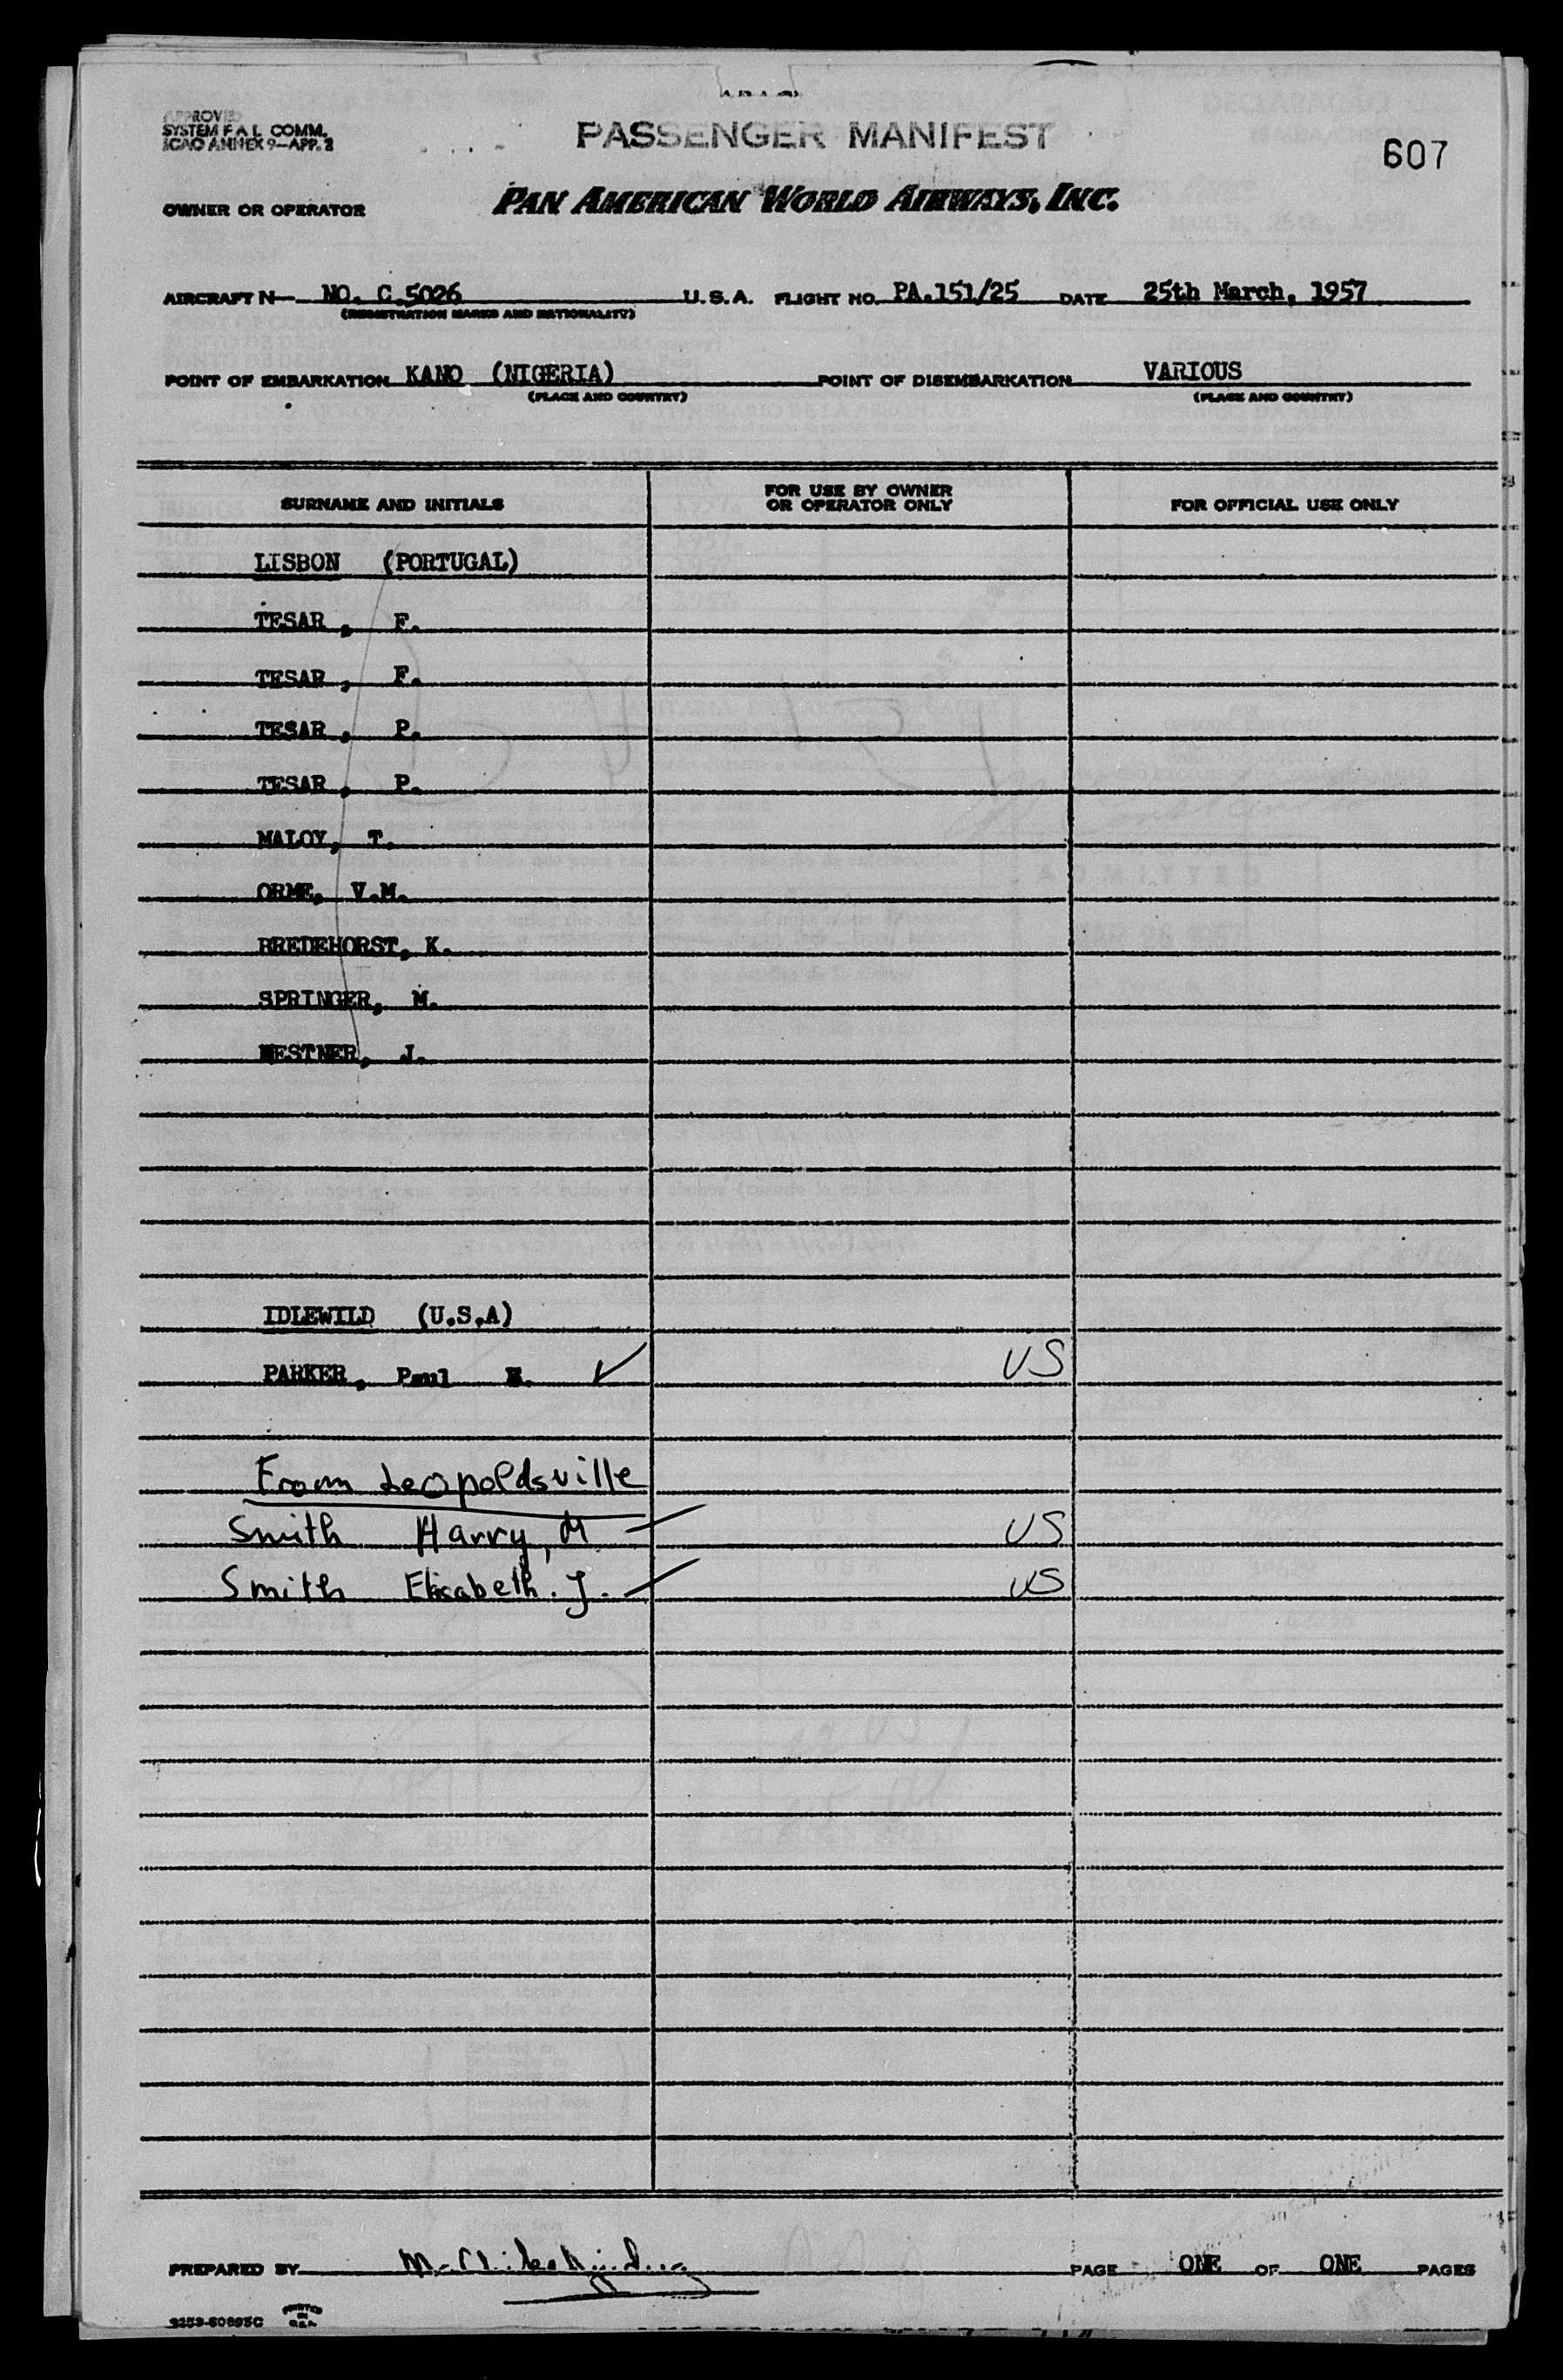 APPROVED
SYSTEM F A L COMM.
ICAO ANNEX 9—APP. 2
PASSENGER MANIFEST
607
OWNER OR OPERATOR PAN AMERICAN WORLD AIRWAYS, INC.
AIRCRAFT N— NO. C.5026 U.S.A. FLIGHT NO. PA.151/25 DATE 25th March, 1957
(REGISTRATION MARKS AND NATIONALITY)
POINT OF EMBARKATION KANO (NIGERIA) POINT OF DISEMBARKATION VARIOUS
(PLACE AND COUNTRY) (PLACE AND COUNTRY)
SURNAME AND INITIALS FOR USE BY OWNER OR OPERATOR ONLY FOR OFFICIAL USE ONLY
LISBON (PORTUGAL)
TESAR, F.
TESAR, F.
TESAR, P.
TESAR, P.
MALOY, T.
ORME, V.M.
BREDEHORST, K.
SPRINGER, M.
NESTNER, J.
IDLEWILD (U.S.A)
PARKER, Paul ✓ US
From Leopoldsville
Smith Harry, M US
Smith Elisabeth. J. US
PREPARED BY PAGE ONE OF ONE PAGES
PRINTED IN U.S.A.